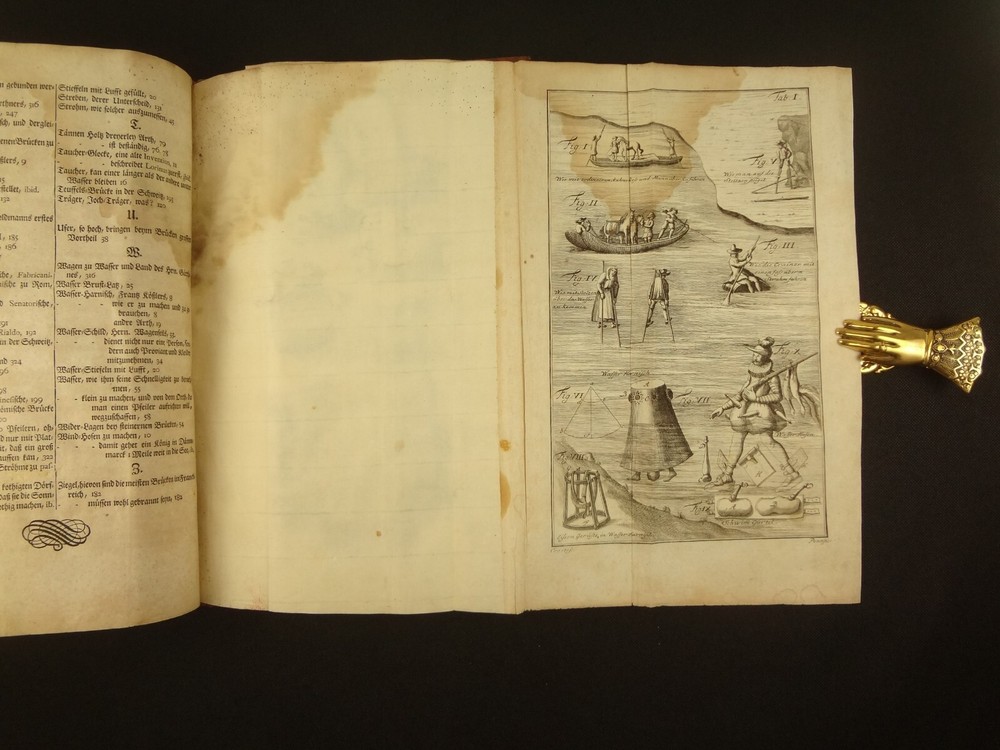 n gedunden wer-
rthners, 316
, 247
sch, und derglei-
enen Brücken zu
ßlers, 9
15
stellet, ibid.
132
oldmanns erstes
l, 185
, 186
he, Fabricani-
ische zu Rom,
d Senatorische,
191
Rialdo, 192
in der Schweitz,
nd 324
96
98
ncilische, 199
ömische Brücke
Pfeilern, oh-
nd nur mit Plat-
it, daß ein groß
auffen kan, 322
Ströhme zu pas-
kothigten Dörf-
daß sie die Sonn-
othig machen, ib.
Stieffeln mit Lufft gefüllt, 20
Streben, derer Unterscheid, 151
Strohm, wie solcher auszumessen, 45
T.
Tannen Holtz dreyerley Arth, 79
- - - ist beständig, 76. 78
Taucher-Glocke, eine alte Invention, 11
- - - beschreibet
Taucher, kan einer länger als der andere unter
Wasser bleiben 16
Teuffels-Brücke in der Schweitz, 195
Träger, Joch-Träger, was? 220
U.
Ufer, so hoch, bringen beym Brücken grossen
Vortheil 38
W.
Wagen zu Wasser und Land des Hrn. Gärth-
ners, 316
Wasser Brust-Latz, 25
Wasser-Harnisch, Frantz Keßlers, 8
- - - wie er zu machen und zu ge-
brauchen, 8
- - - andre Arth, 19
Wasser-Schild, Hern. Wagenseils, 33
- - - dienet nicht nur ein Person, son-
dern auch Proviant und Kleider
mitzunehmen, 34
Wasser-Stiefeln mit Lufft, 20
Wasser, wie ihm seine Schnelligkeit zu beneh-
men, 55
- - klein zu machen, und von den Orth, da
man einen Pfeiler aufführen will,
wegzuschaffen, 58
Wider-Lagen bey steinernen Brücken, 54
Wind-Hosen zu machen, 10
- - - damit gehet ein König in Dänne-
marck 1 Meile weit in die See,
Z.
Ziegel, hievon sind die meisten Brücken in Franck-
reich, 182
- - - müssen wohl gebrannt seyn, 182
Tab. I
Fig. I
Fig. V
Fig. II
Fig. III
Fig. IV
Fig. X
Wasser Harnisch
Fig. VI
Fig. VII
Fig. VIII
Fig. IX
Schwim Gürtel